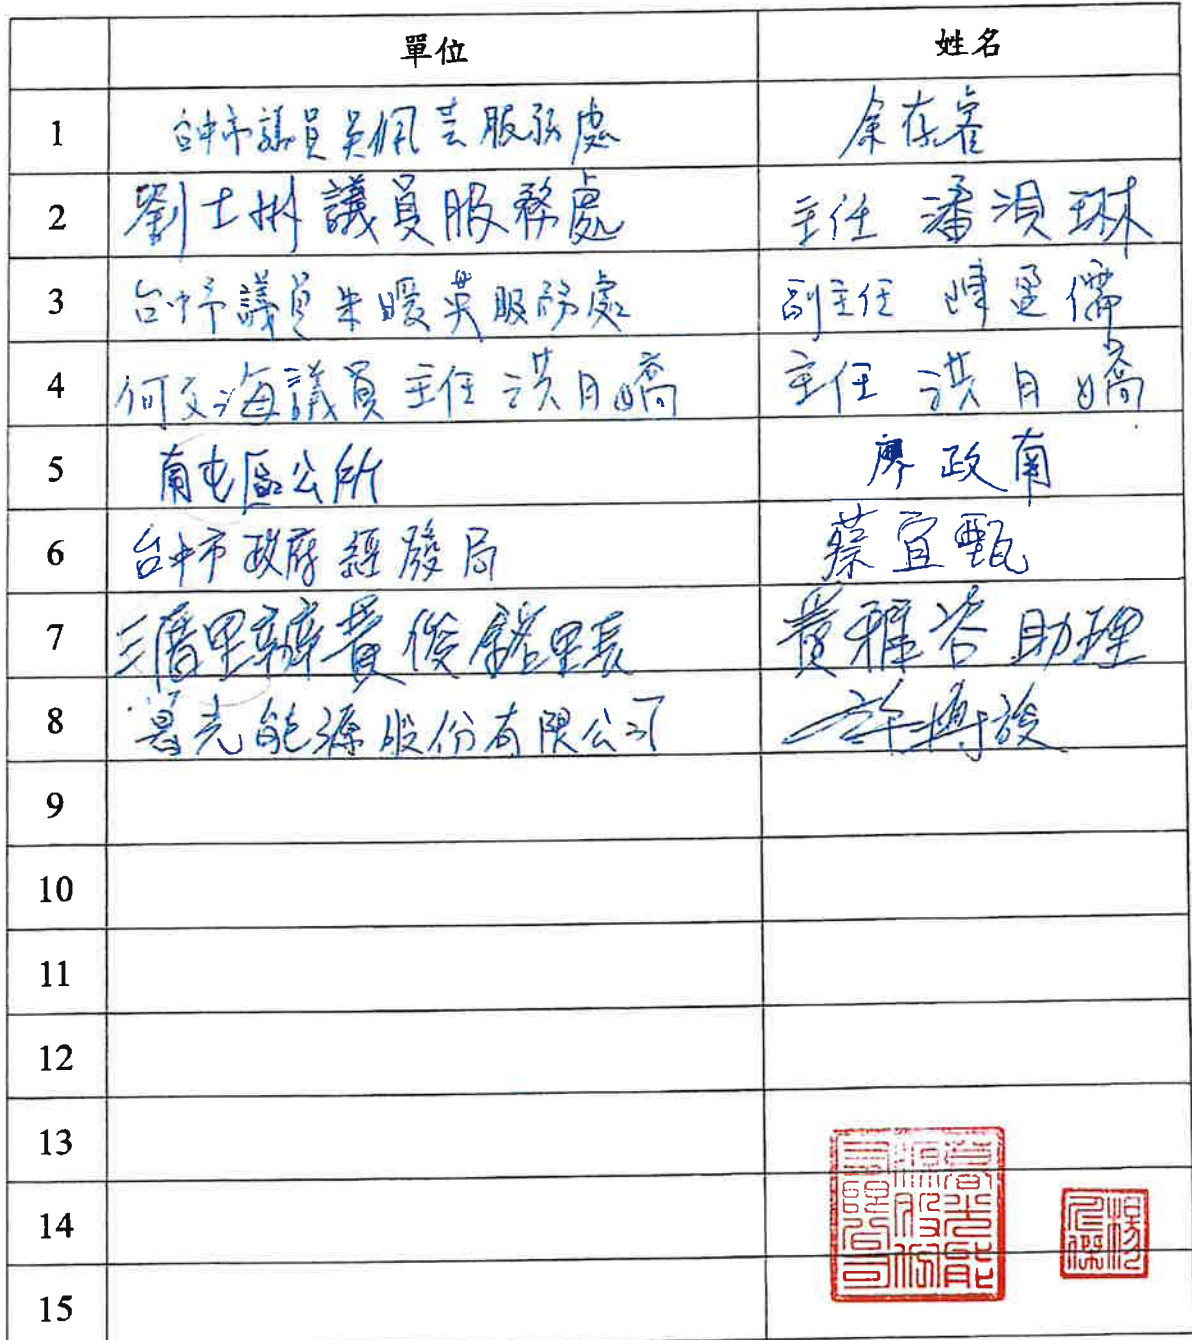 單位 姓名
1 台中市議員吳佩芸服務處 余存睿
2 劉士州議員服務處 主任 潘湞琳
3 台中市議員朱暖英服務處 副主任 陳 儒
4 何文海議員 主任 洪月嬌 主任 洪月嬌
5 南屯區公所 廖政南
6 台中市政府經發局 蔡宜甄
7 三厝里辦 費俊 里長 費雅 助理
8 光能源股份有限公司 許博
9
10
11
12
13
14
15